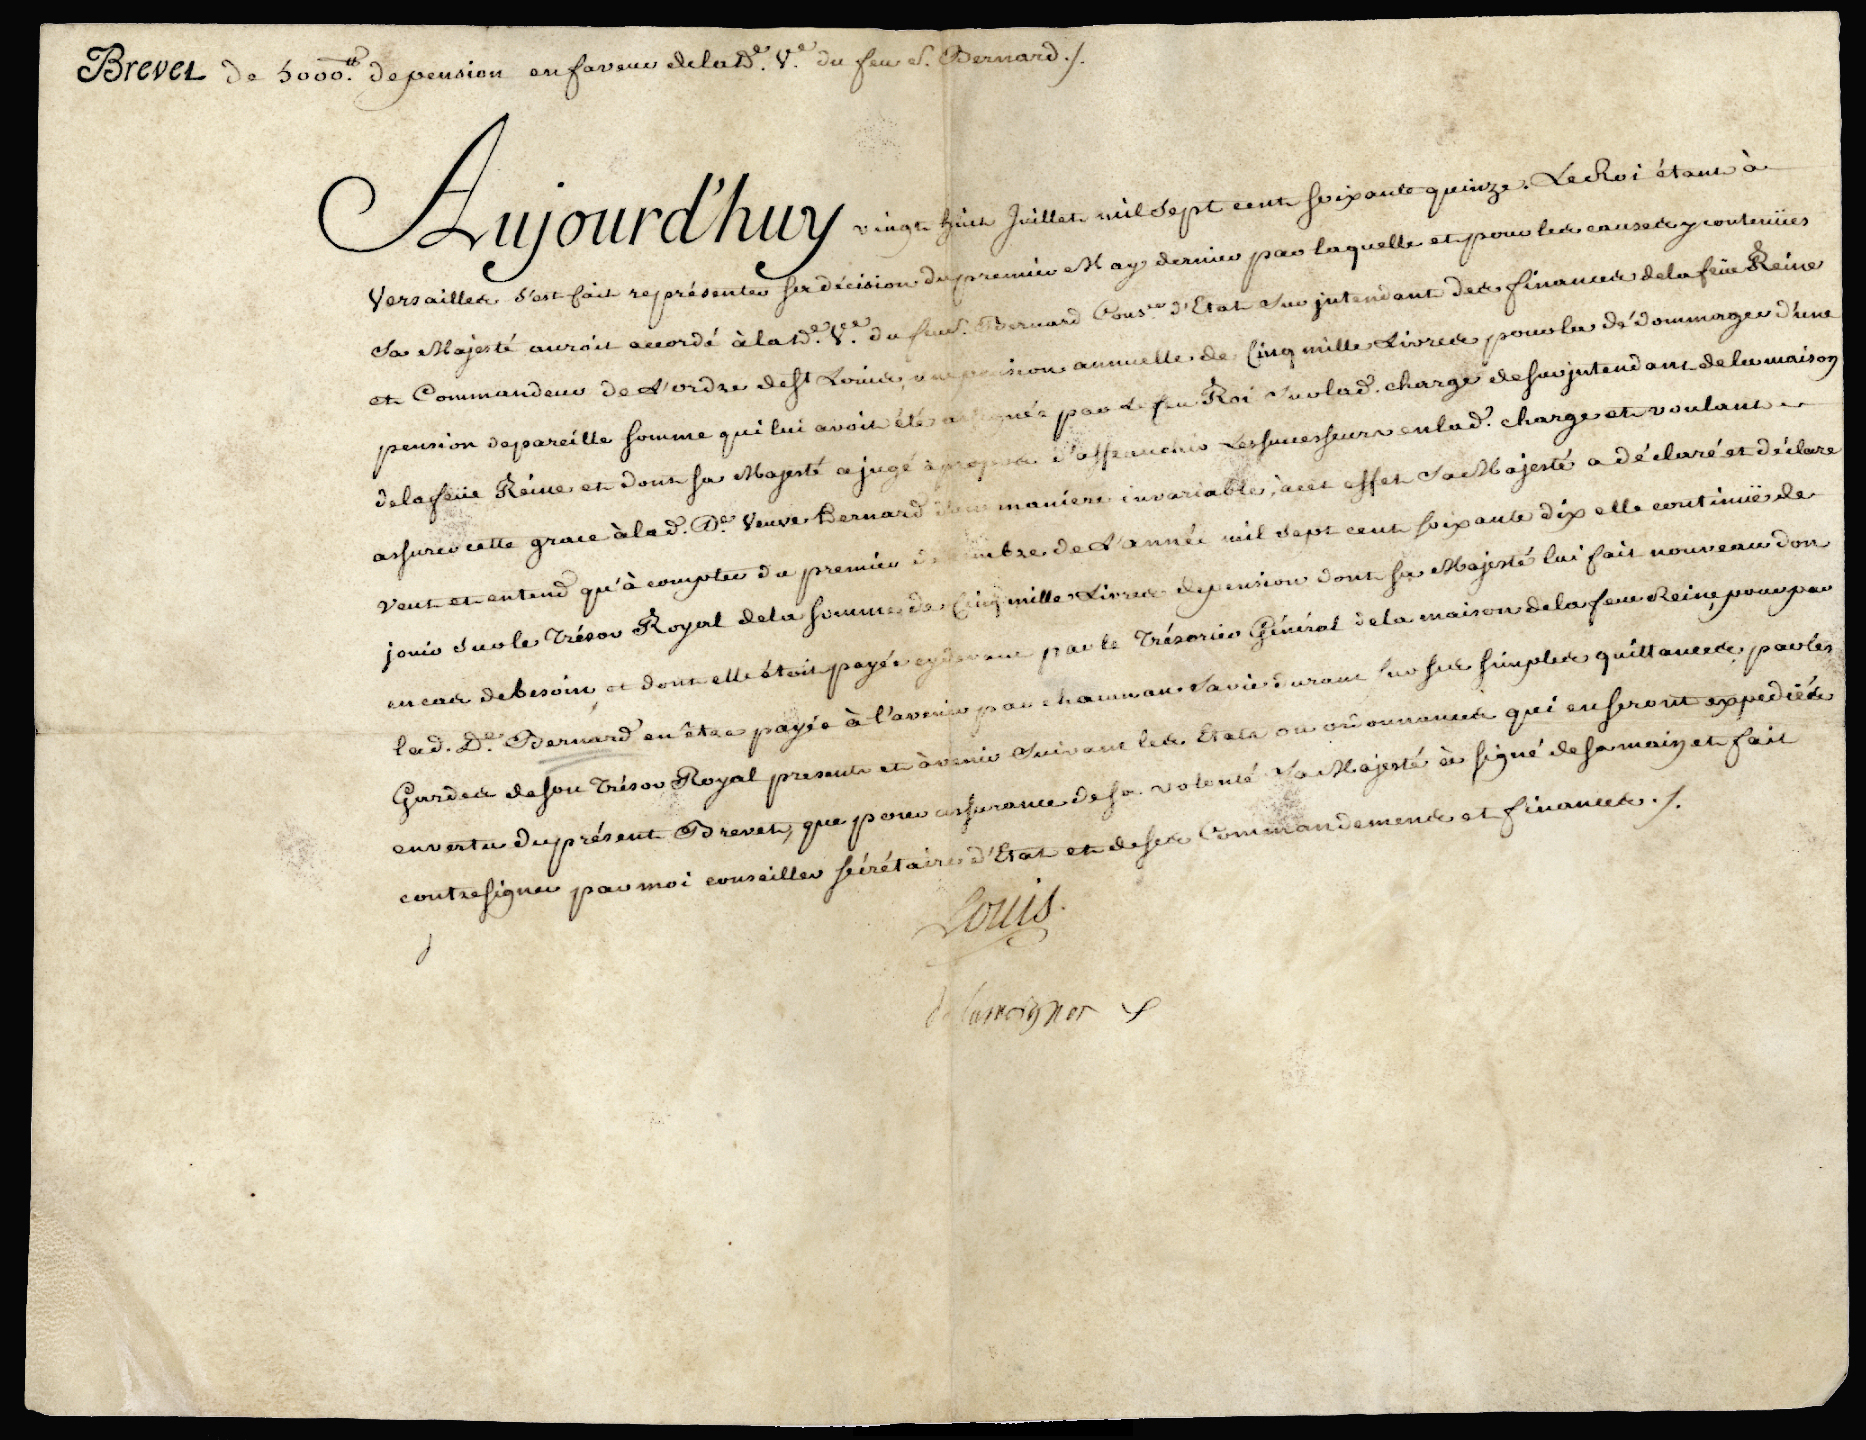 Brevet de 5000.tt de pension en faveur de la D.e V.e du feu S. Bernard ./.
Aujourd'huy vingt huit Juillet mil sept cent soixante quinze. Le Roi étant à
Versailles s'est fait représenter sa décision du premier May dernier par laquelle et pour les causes y contenües
Sa Majesté auroit accordé à la D.e V.e du feu S. Bernard Cons.er d'Etat Sur jntendant des finances de la feüe Reine
et Commandeur de L'ordre de St Louis, une pension annuelle de Cinq mille Livres pour la dédommager d'une
pension de pareille somme qui lui avoit été assignée par Le feu Roi sur lad. charge de sur jntendant de la maison
de la feüe Reine et dont sa Majesté a jugé à propos d'affranchir Les successeurs en lad. charge et voulant
assurer cette grace à lad. D.e Veuve Bernard d'une maniere invariable, à cet effet Sa Majesté a déclaré et déclare
veut et entend qu'à compter du premier decembre de L'année mil sept cent soixante dix elle continüe de
jouir sur le Trésor Royal de la somme de Cinq mille Livres de pension dont sa Majesté lui fait nouveau don
en cas de besoin, et dont elle étoit payée cy devant par le Trésorier Général de la maison de la feue Reine, pour par
lad. D.e Bernard en être payée à l'avenir par chacun an sa vie durant sur ses simples quittances, par les
Gardes de son Trésor Royal presents et àvenir suivant les Etats ou ordonnances qui en seront expediés
en vertu du présent Brevet, que pour assurance de sa volonté Sa Majesté à signé de sa main et fait
contresigner par moi conseiller sécrétaire d'Etat et de ses Commandemens et finances ./.
Louis
de Lamoignon